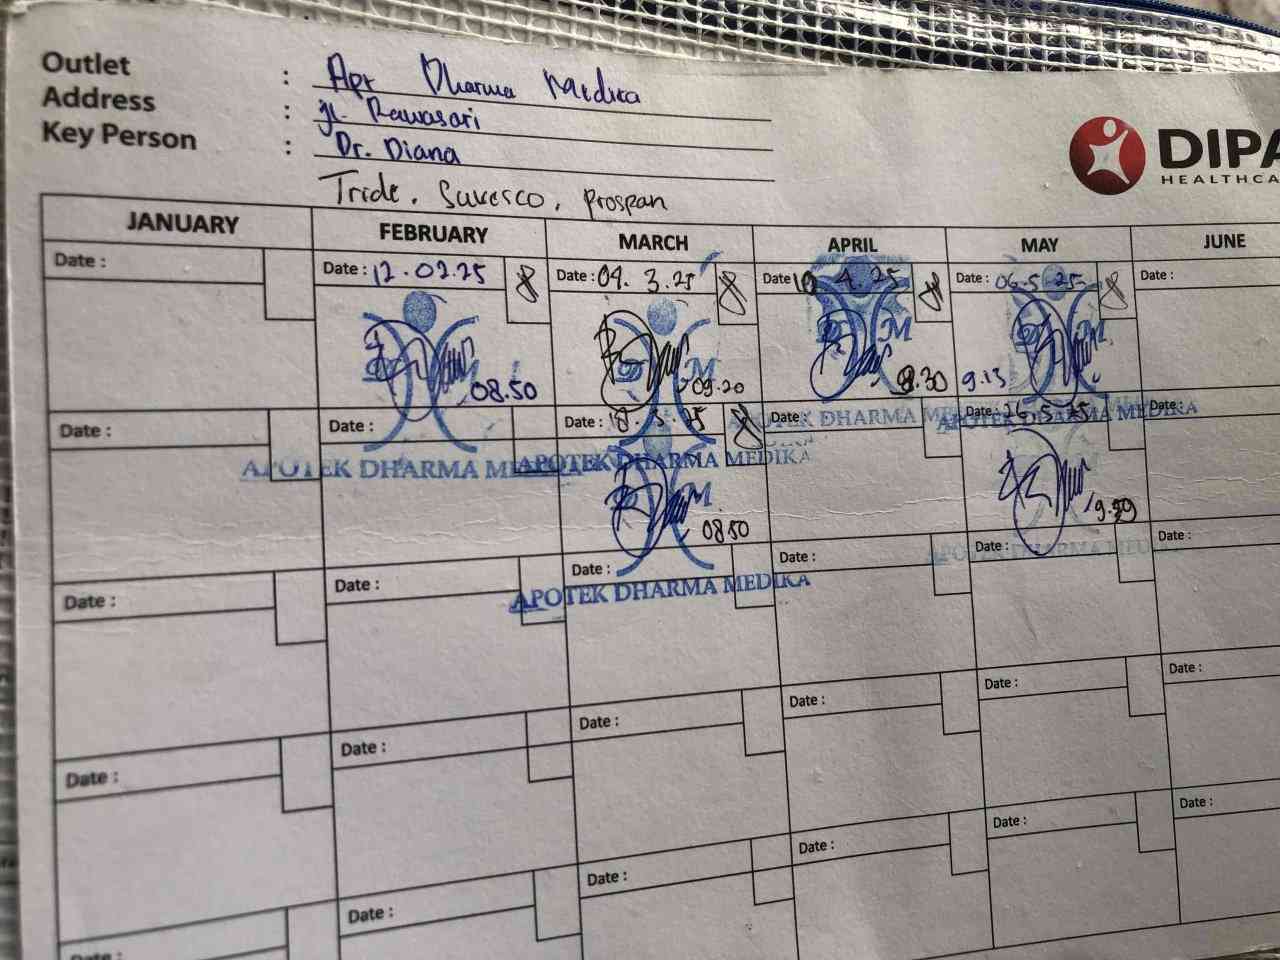 Outlet : Apt Dharma Medika
Address : jl. Rawasari
Key Person : Dr. Diana
DIPA
HEALTHCA
Tride. Suvesco. Prospan
JANUARY FEBRUARY MARCH APRIL MAY JUNE
Date : Date : 12.02.25 Date : 04.3.25 Date 10 4.25 Date : 06-5-25 Date :
M M
08.50 09.20 8.30 9.13
Date : Date : Date : 18.3.25 Date : Date : 26.5.25 Date :
APOTEK DHARMA MEDIKA APOTEK DHARMA MEDIKA APOTEK DHARMA ME APOTEK DHARMA MEDIKA
M
08.50 9.59
Date : Date : Date : Date : Date : Date :
APOTEK DHARMA MEDIKA APOTEK DHARMA MEDIKA
Date : Date : Date : Date : Date : Date :
Date : Date : Date : Date : Date : Date :